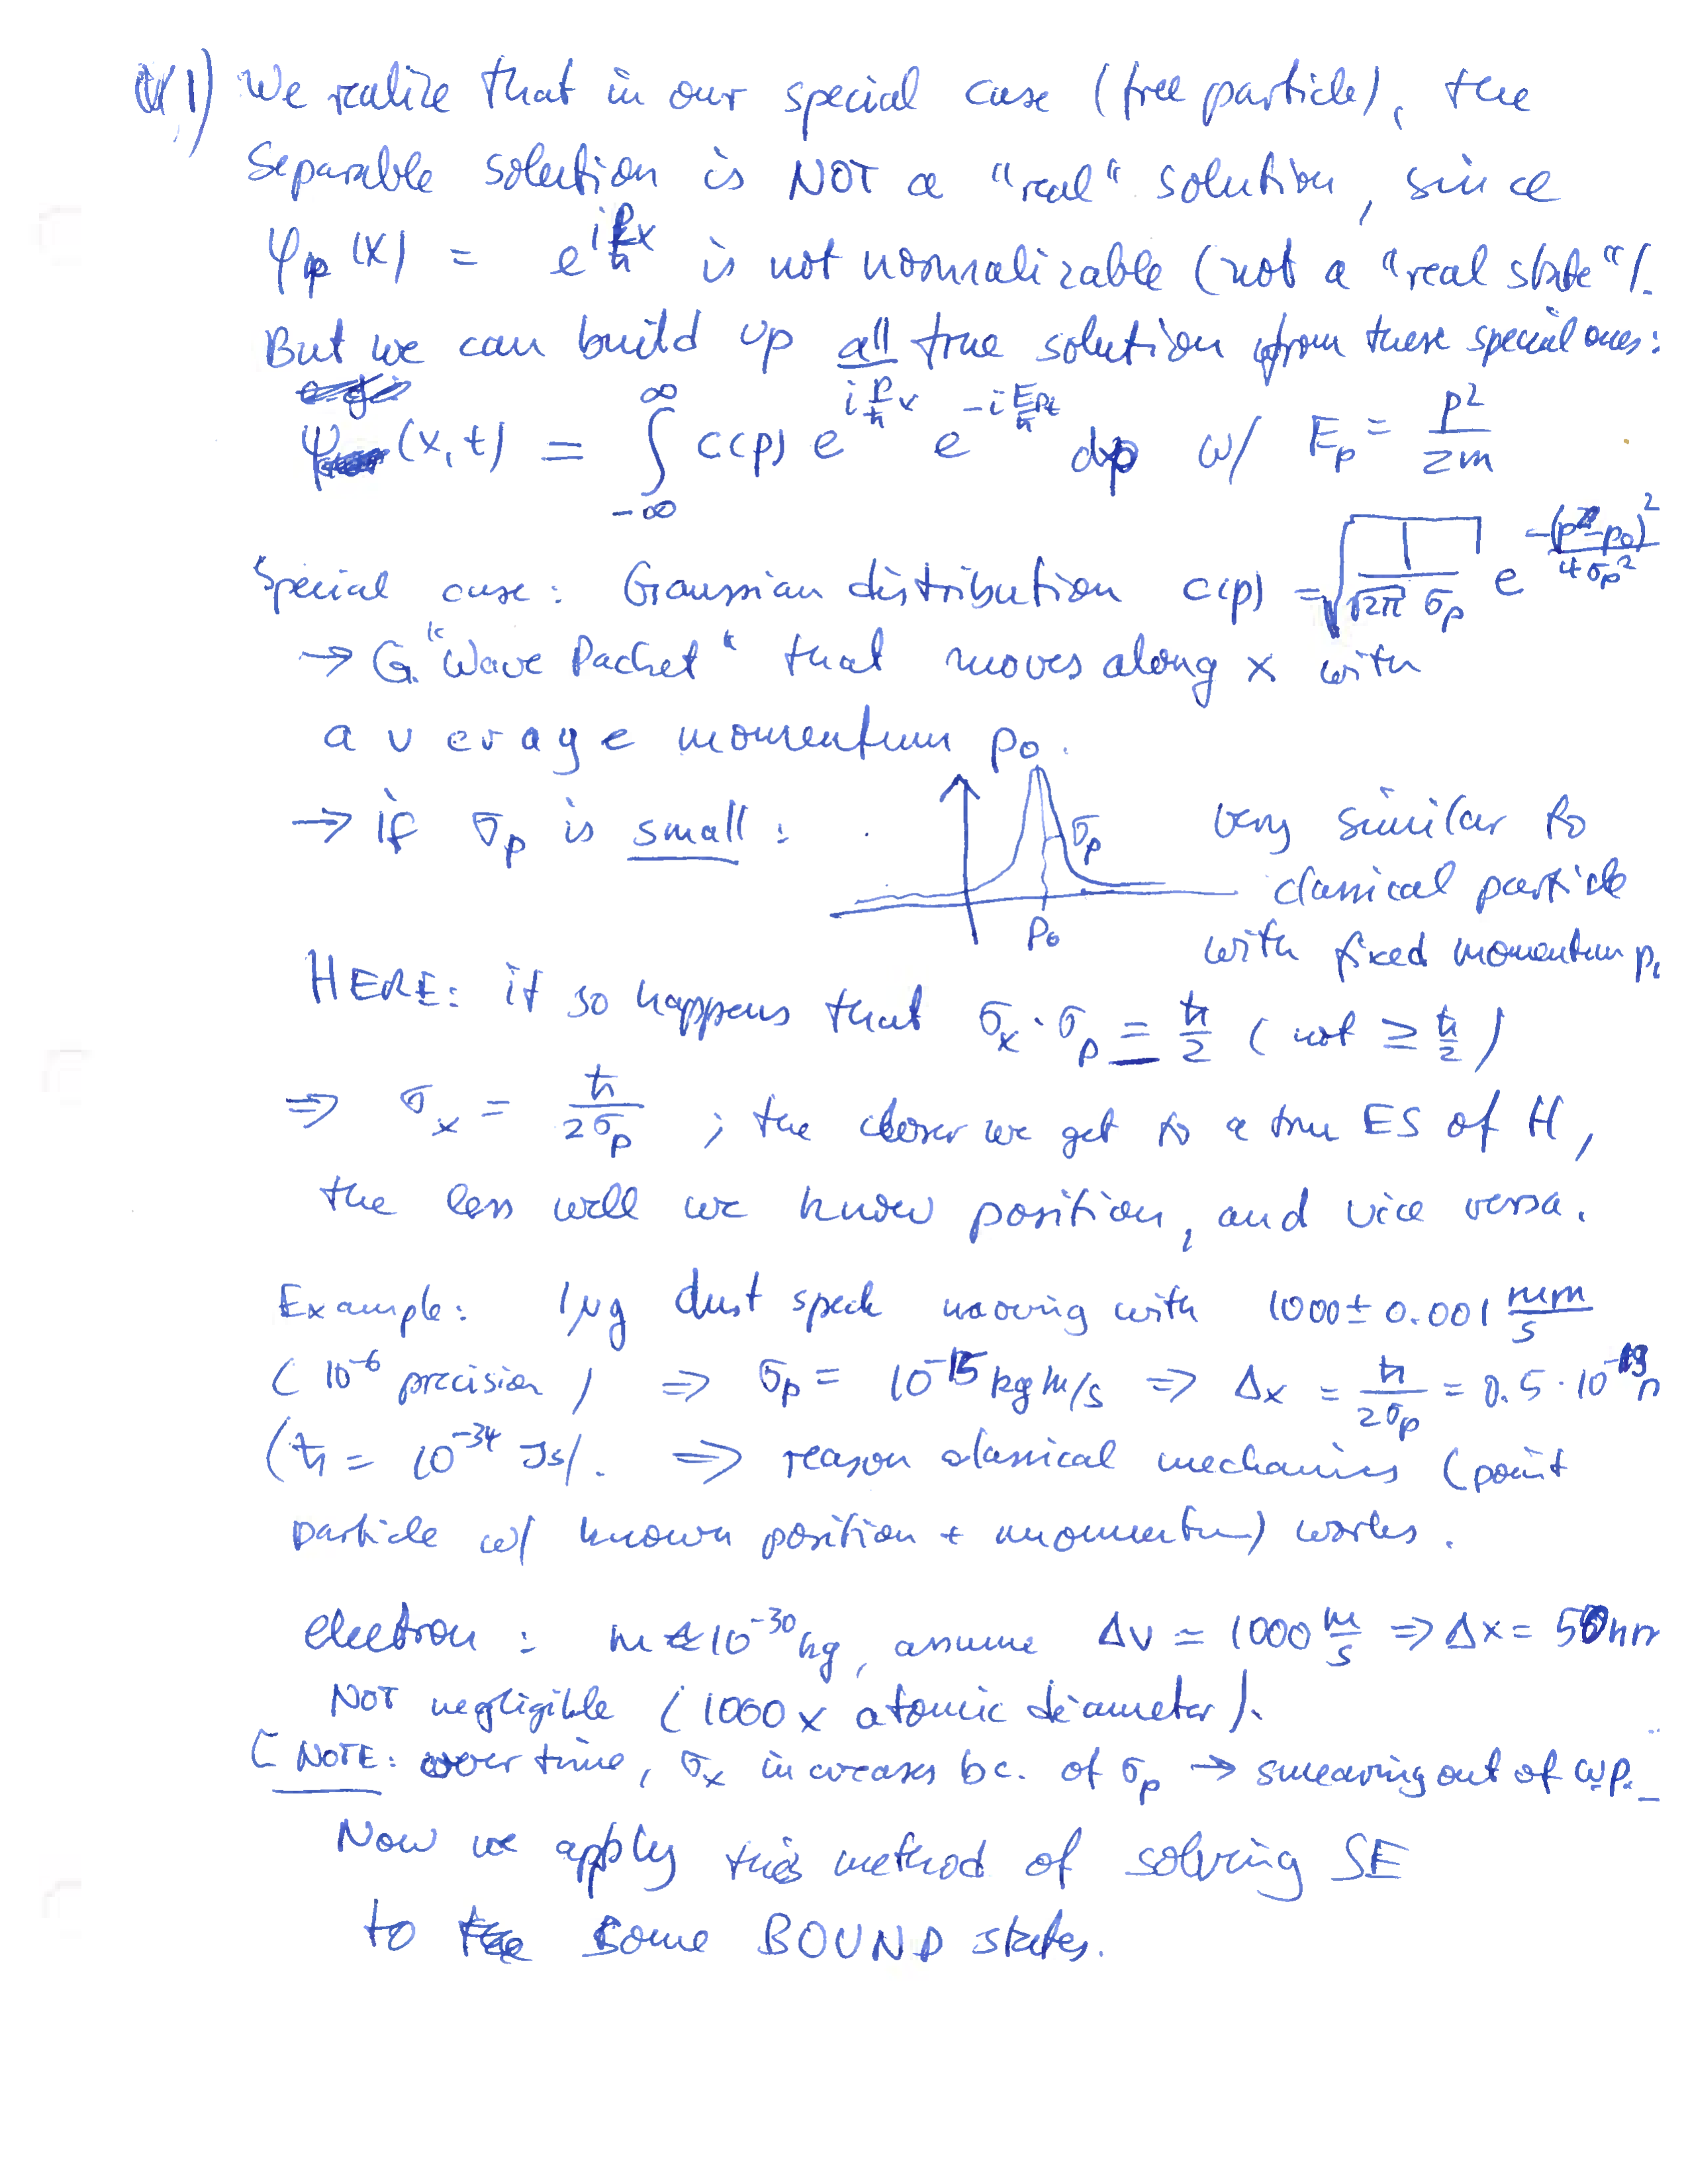 VI) We realize that in our special case (free particle), the
Separable solution is NOT a "real" solution, since
φ_p (x) = e^{i p/ħ x} is not normalizable (not a "real state").
But we can build up all true solution from these special ones:
ψ (x,t) = ∫_{-∞}^{∞} c(p) e^{i p/ħ x} e^{-i E_p/ħ t} dp w/ E_p = p²/2m
Special case: Gaussian distribution c(p) = √(1/(√2π σ_p)) e^{-(p-p₀)²/4σ_p²}
→ G. "Wave Packet" that moves along x with
average momentum p₀.
→ if σ_p is small: σ_p very similar to
classical particle
p₀ with fixed momentum p
HERE: it so happens that σ_x · σ_p = ħ/2 (not ≥ ħ/2)
⇒ σ_x = ħ/2σ_p ; the closer we get to a true ES of H,
the less well we know position, and vice versa.
Example: 1μg dust speck moving with 1000 ± 0.001 mm/s
(10⁻⁶ precision) ⇒ σ_p = 10⁻¹⁵ kg m/s ⇒ Δx = ħ/2σ_p = 0.5 · 10⁻¹⁹
(ħ = 10⁻³⁴ Js). ⇒ reason classical mechanics (point
particle w/ known position + momentum) works.
electron: m ≈ 10⁻³⁰ kg, assume Δv ≃ 1000 m/s ⇒ Δx = 50nm
NOT negligible (1000 x atomic diameter).
[NOTE: over time, σ_x increases bc. of σ_p → smearing out of w.p.
Now we apply this method of solving SE
to some BOUND states.